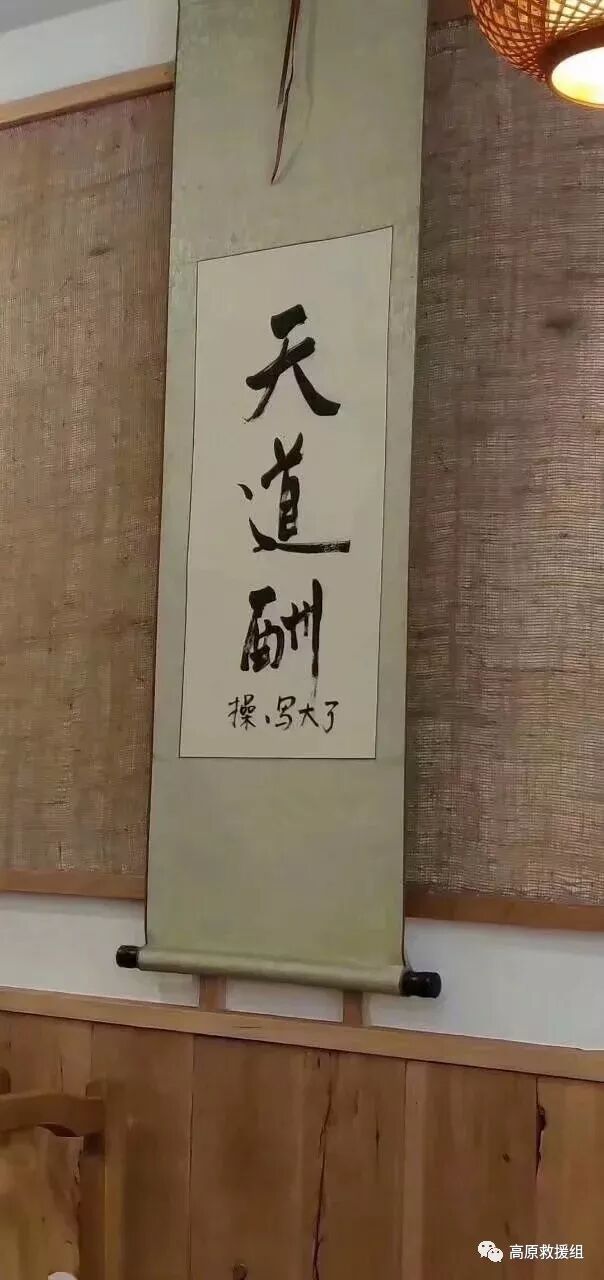 天
道
酬
操、写大了
高原救援组